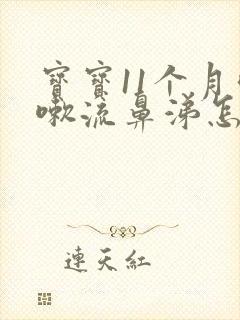 寳寳11个月
嗽流鼻涕怎
連天紅